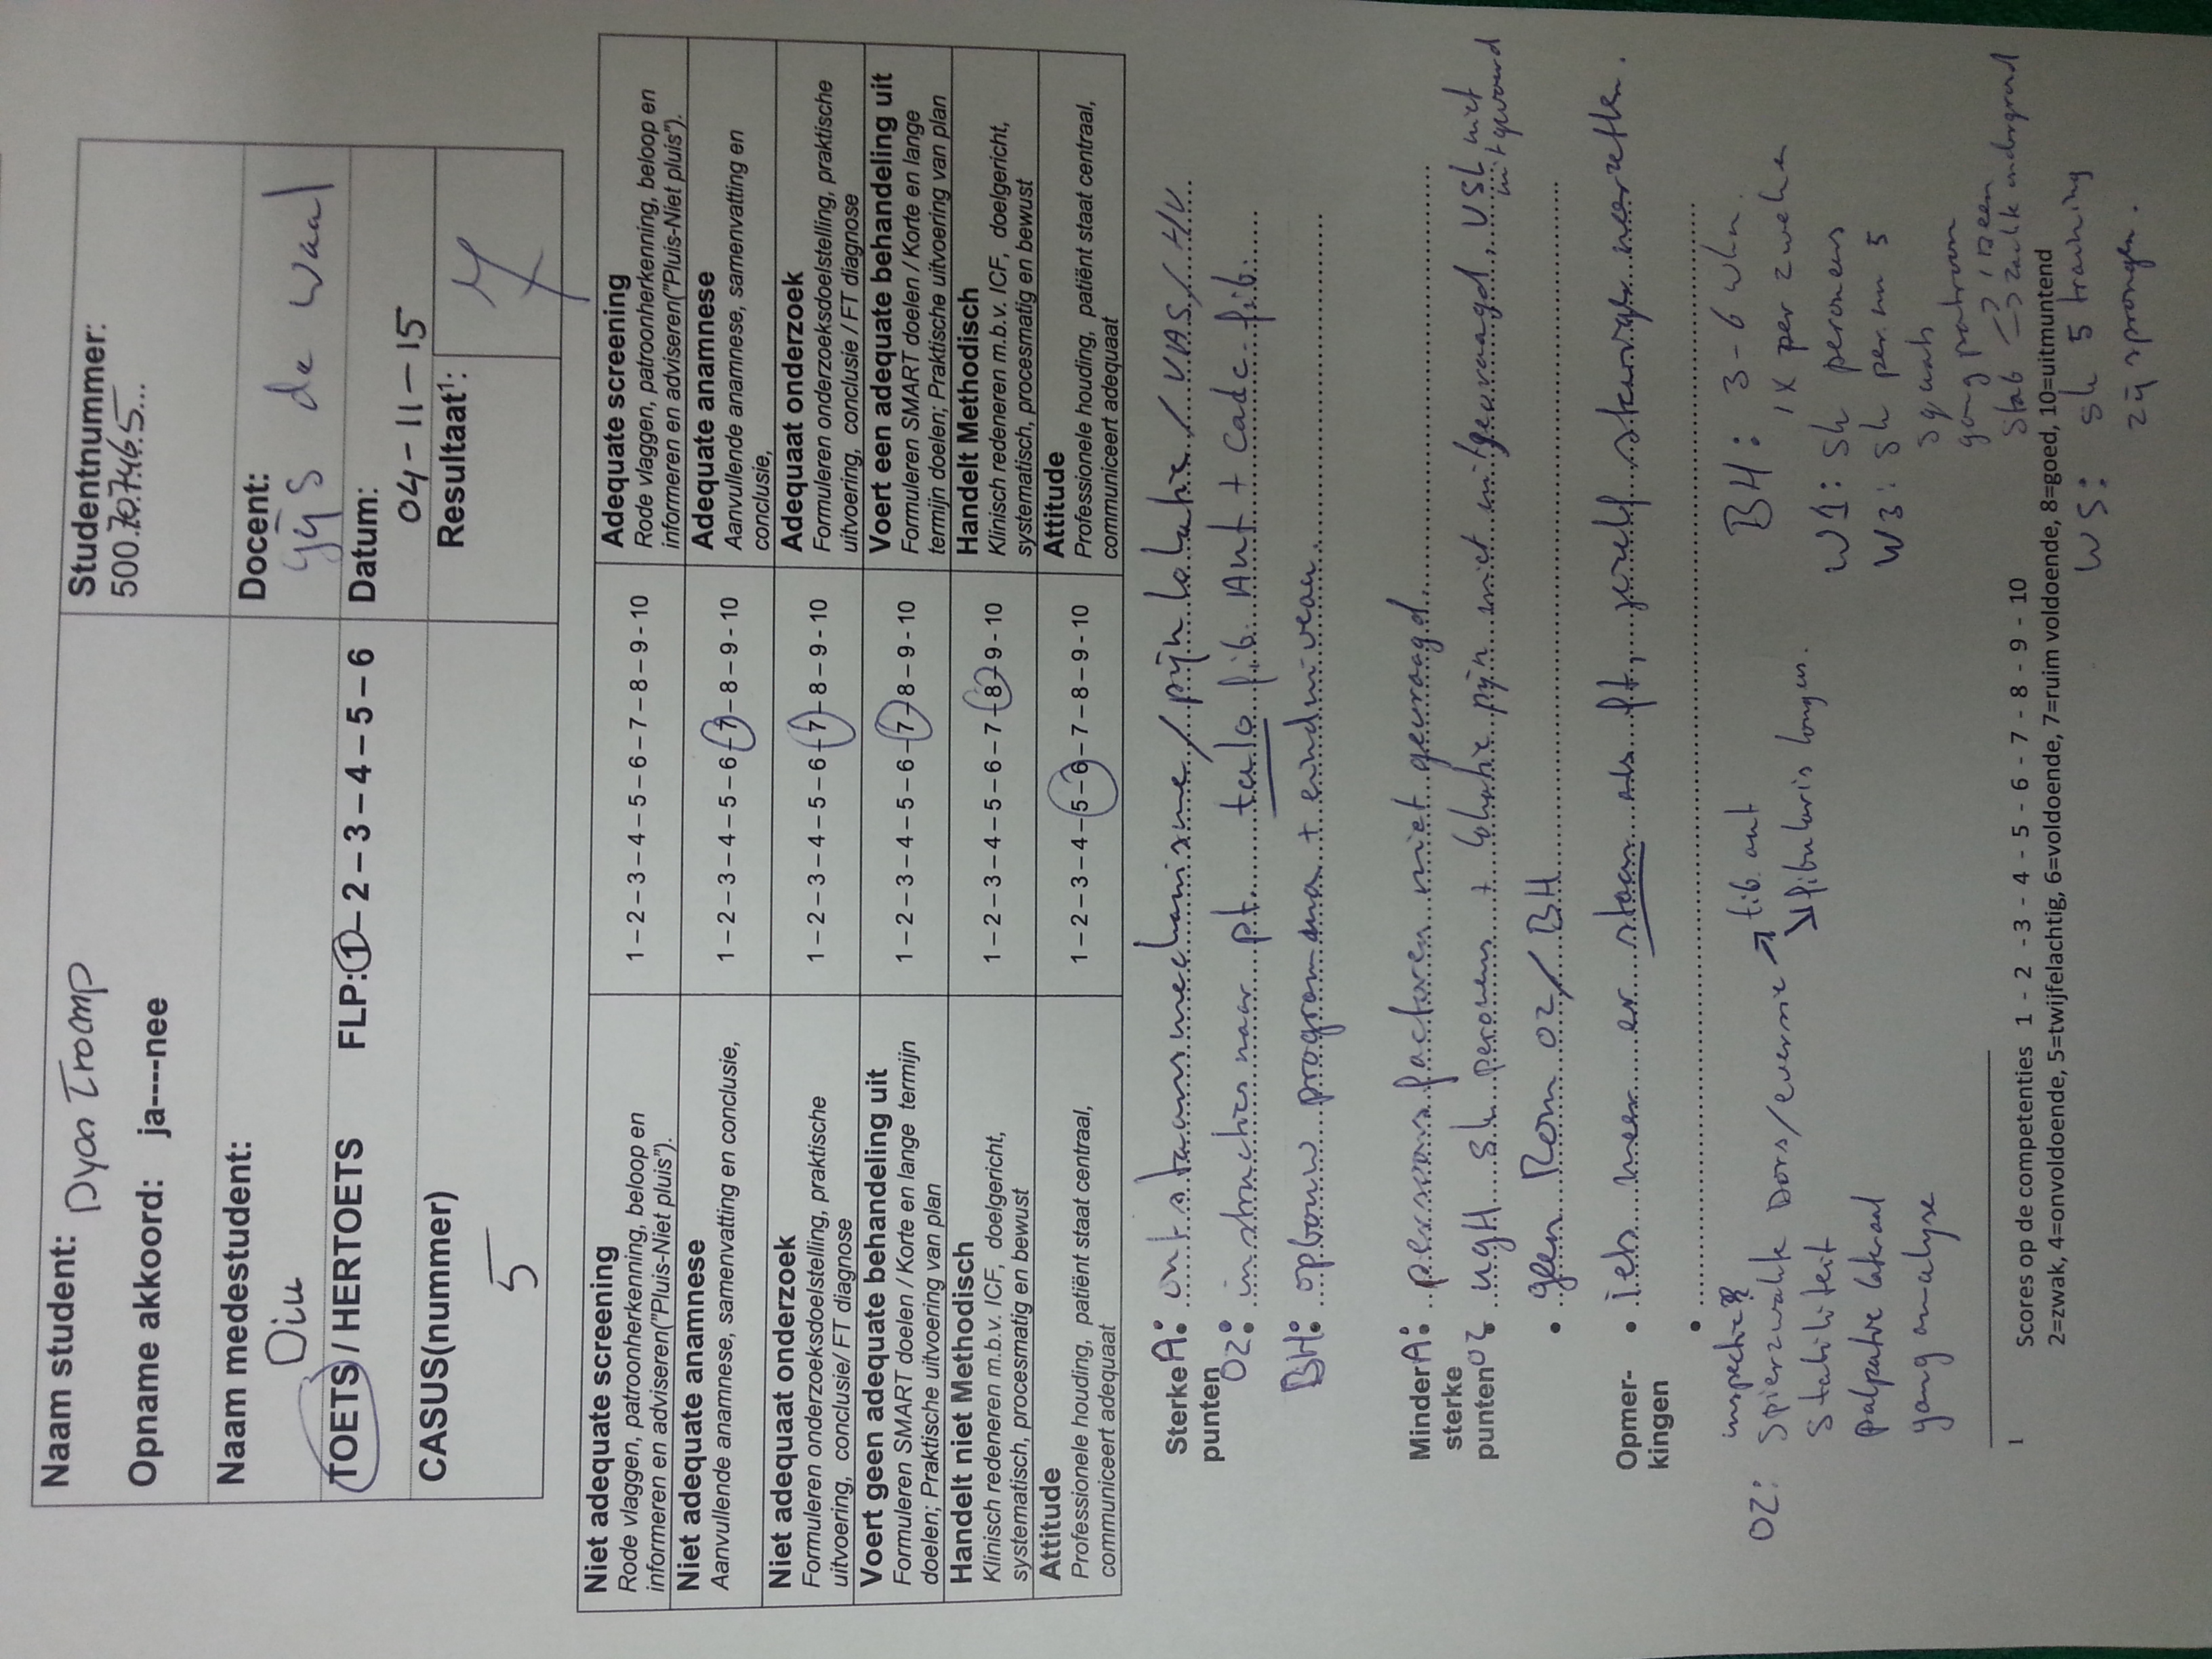 Naam student: Dyon Tromp
Studentnummer:
500.707465...
Opname akkoord: ja----nee
Naam medestudent:
Diu
Docent:
Gijs de Waal
TOETS / HERTOETS FLP: 1 – 2 – 3 – 4 – 5 – 6
Datum:
04-11-15
CASUS(nummer)
5
Resultaat¹:
7
Niet adequate screening
Rode vlaggen, patroonherkenning, beloop en
informeren en adviseren("Pluis-Niet pluis").
1 – 2 – 3 – 4 – 5 – 6 – 7 – 8 – 9 - 10
Adequate screening
Rode vlaggen, patroonherkenning, beloop en
informeren en adviseren("Pluis-Niet pluis").
Niet adequate anamnese
Aanvullende anamnese, samenvatting en conclusie,
1 – 2 – 3 – 4 – 5 – 6 – 7 – 8 – 9 - 10
Adequate anamnese
Aanvullende anamnese, samenvatting en
conclusie,
Niet adequaat onderzoek
Formuleren onderzoeksdoelstelling, praktische
uitvoering, conclusie/ FT diagnose
1 – 2 – 3 – 4 – 5 – 6 – 7 – 8 – 9 - 10
Adequaat onderzoek
Formuleren onderzoeksdoelstelling, praktische
uitvoering, conclusie / FT diagnose
Voert geen adequate behandeling uit
Formuleren SMART doelen / Korte en lange termijn
doelen; Praktische uitvoering van plan
1 – 2 – 3 – 4 – 5 – 6 – 7 – 8 – 9 - 10
Voert een adequate behandeling uit
Formuleren SMART doelen / Korte en lange
termijn doelen; Praktische uitvoering van plan
Handelt niet Methodisch
Klinisch redeneren m.b.v. ICF, doelgericht,
systematisch, procesmatig en bewust
1 – 2 – 3 – 4 – 5 – 6 – 7 – 8 – 9 - 10
Handelt Methodisch
Klinisch redeneren m.b.v. ICF, doelgericht,
systematisch, procesmatig en bewust
Attitude
Professionele houding, patiënt staat centraal,
communiceert adequaat
1 – 2 – 3 – 4 – 5 – 6 – 7 – 8 – 9 - 10
Attitude
Professionele houding, patiënt staat centraal,
communiceert adequaat
Sterke punten
A: ontstaansmechanisme / pijn lokatie / VAS / HV
OZ: instructies naar pt. talo fib. Ant + Calc. fib.
BH: opbouw programma + eindniveau
Minder sterke punten
A: persoons factoren niet gevraagd
OZ lokatie pijn niet uitgevraagd, VSL niet
uitgevoerd
• geen Rom OZ / BH
Opmer-kingen
• iets meer er staan als ft, jezelf neerzetten.
•
OZ: inspectie
spierzwakte Dors/eversie → tib. ant
↘ fibularis longus.
stabiliteit
palpatie lateraal
gang analyse
BH: 3-6 wkn.
1x per 2 weken
W1: sh peroneus
W3: sh per. nu 5
squats
gang patroon
stab → 1 been
→ zachte ondergrond
W5: sh 5 training
zij sprongen.
1 Scores op de competenties 1 - 2 - 3 - 4 - 5 - 6 - 7 - 8 - 9 - 10
2=zwak, 4=onvoldoende, 5=twijfelachtig, 6=voldoende, 7=ruim voldoende, 8=goed, 10=uitmuntend